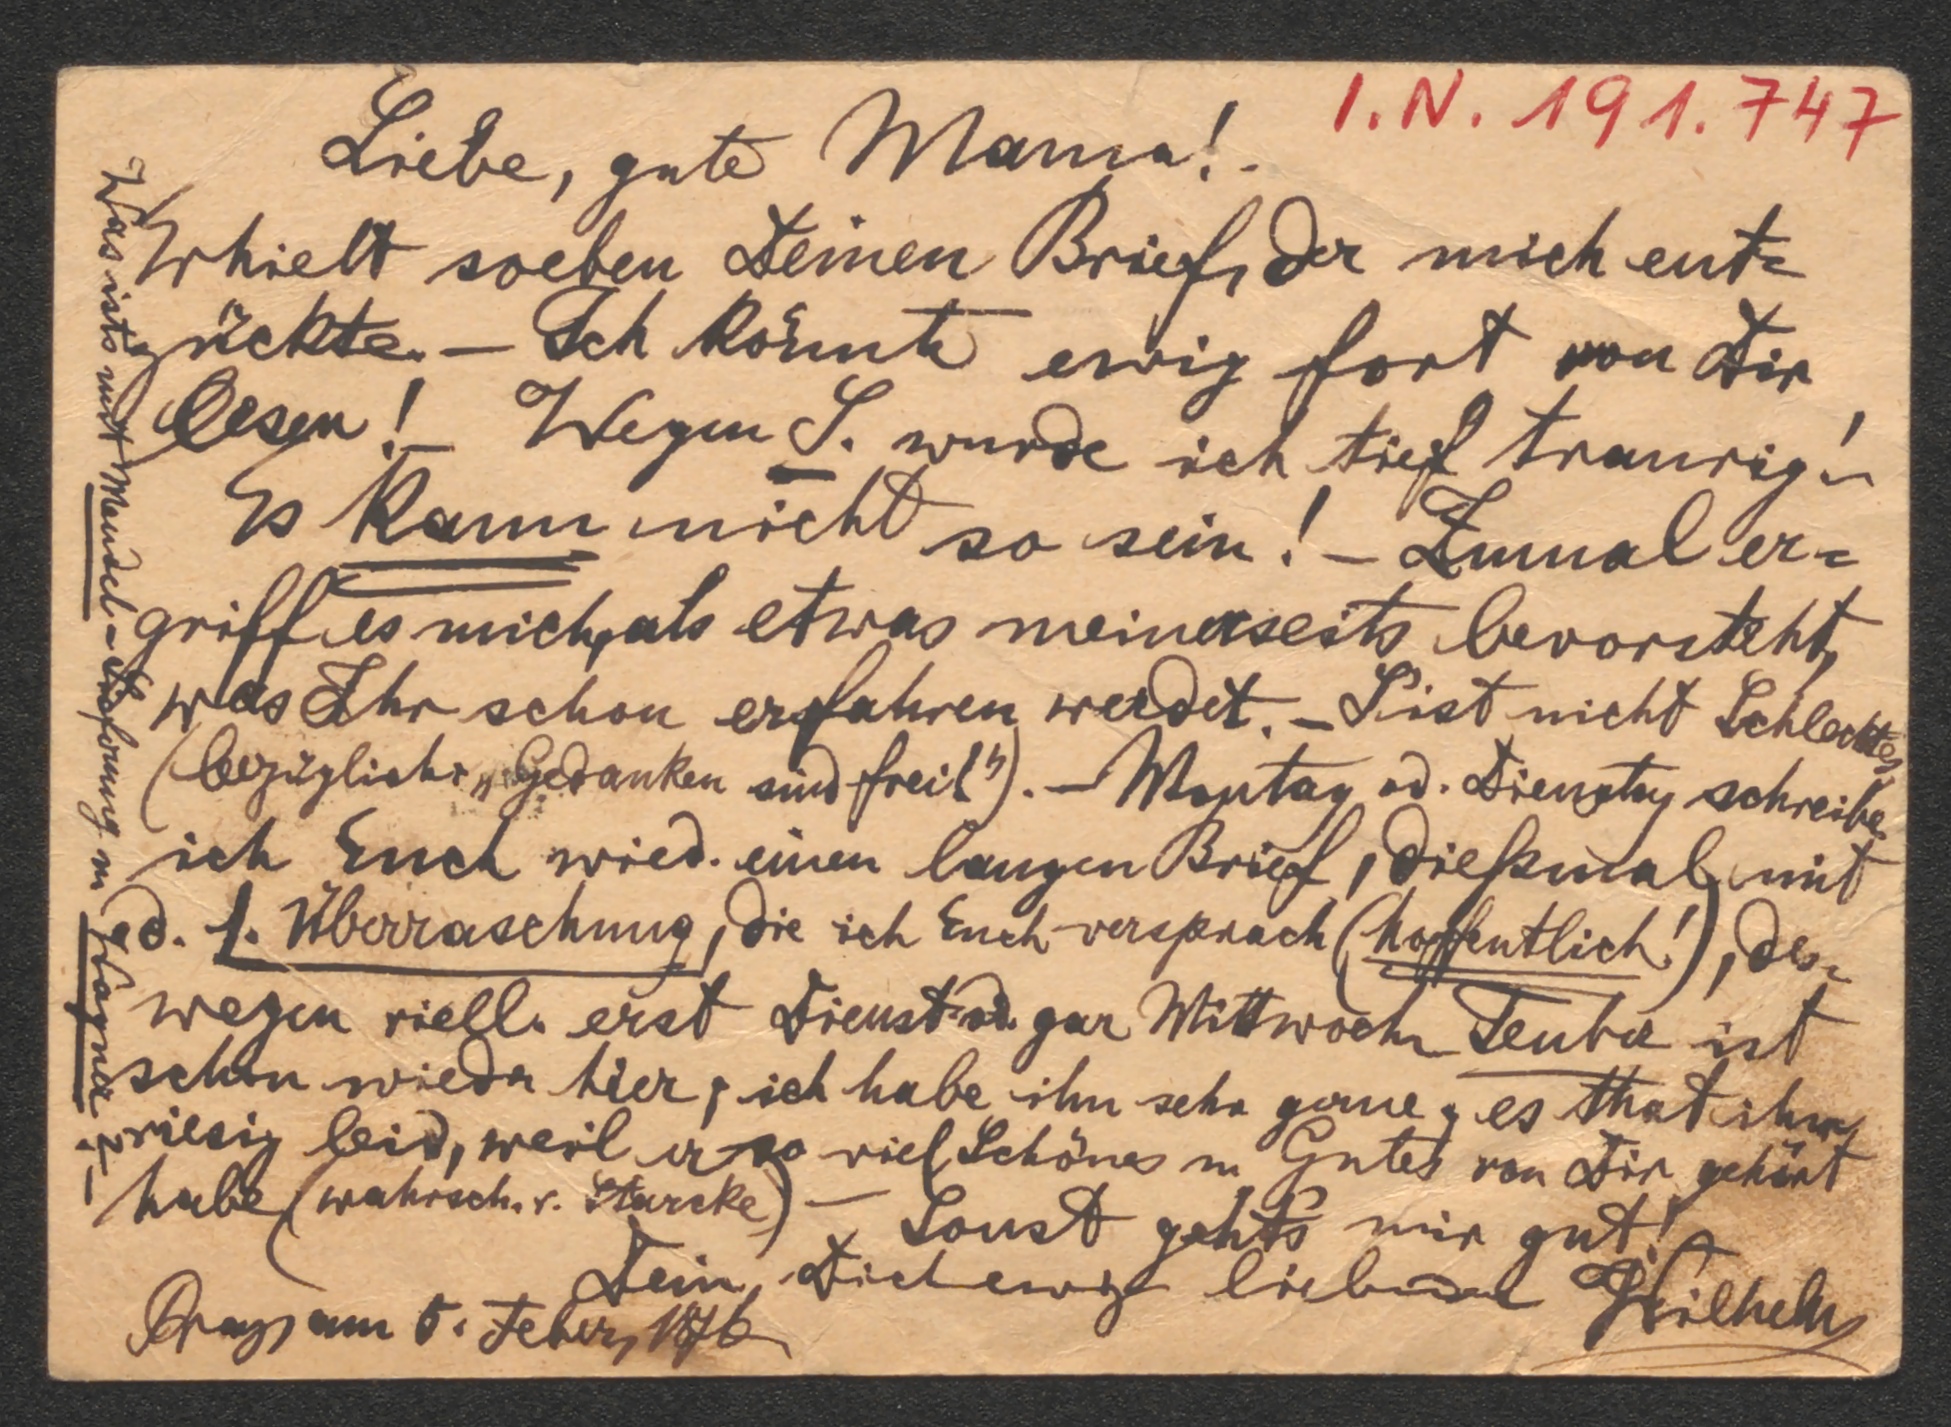 I.N. 191.747
Liebe, gute Mama!
Erhielt soeben Deinen Brief, der mich ent=
zückte. – Ich könnte ewig fort von Dir
lesen! – Wegen S. wurde ich tief traurig! –
Es kann nicht so sein! – Zumal er=
griff es mich, als etwas meinerseits bevorsteht,
was Ihr schon erfahren werdet. – S. ist nicht Schlechtes
(bezüglich „Gedanken sind frei!“). – Montag od. Dienstag schreibe
ich Euch wied. einen langen Brief, dießmal mit
d. 1. Überraschung, die ich Euch versprach (hoffentlich!), des=
wegen viell. erst Dienst. od. gar Mittwoch. Teuber ist
schon wieder hier; ich habe ihn sehr gerne; es that ihm
riesig leid, weil er so viel Schönes u. Gutes von Dir gehört
habe (wahrsch. v. Starcke) – Sonst geht's mir gut!
Dein Dich ewig liebender Wilhelm
Prag, am 5. Feber, 1876
Was ists mit Mendel- u. Wagner?–